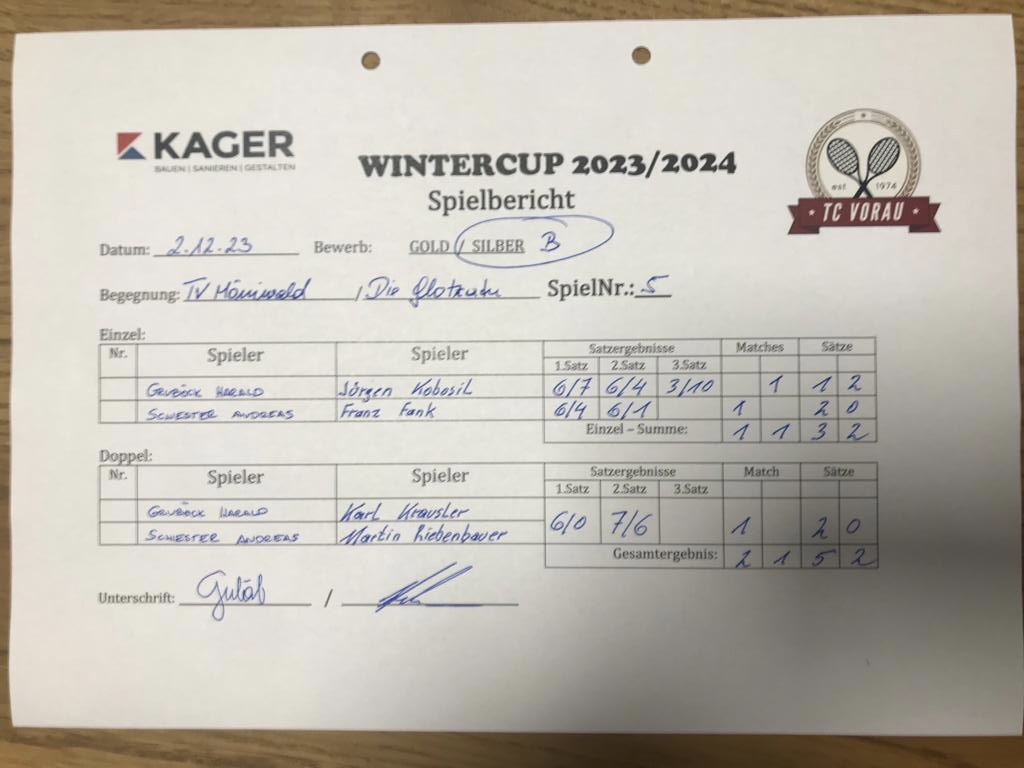 KAGER
BAUEN | SANIEREN | GESTALTEN
WINTERCUP 2023/2024
Spielbericht
est 1974
TC VORAU
Datum: 2.12.23 Bewerb: GOLD / SILBER B
Begegnung: TV Möniwald / Die SpielNr.: 5
Einzel:
Nr. Spieler Spieler Satzergebnisse Matches Sätze
1.Satz 2.Satz 3.Satz
GRUBÖCK HARALD Jürgen Kobosil 6/7 6/4 3/10 1 1 2
SCHIESTER ANDREAS Franz Fank 6/4 6/1 1 2 0
Einzel – Summe: 1 1 3 2
Doppel:
Nr. Spieler Spieler Satzergebnisse Match Sätze
1.Satz 2.Satz 3.Satz
GRUBÖCK HARALD Karl Krausler
SCHIESTER ANDREAS Martin Liebenbauer 6/0 7/6 1 2 0
Gesamtergebnis: 2 1 5 2
Unterschrift: /